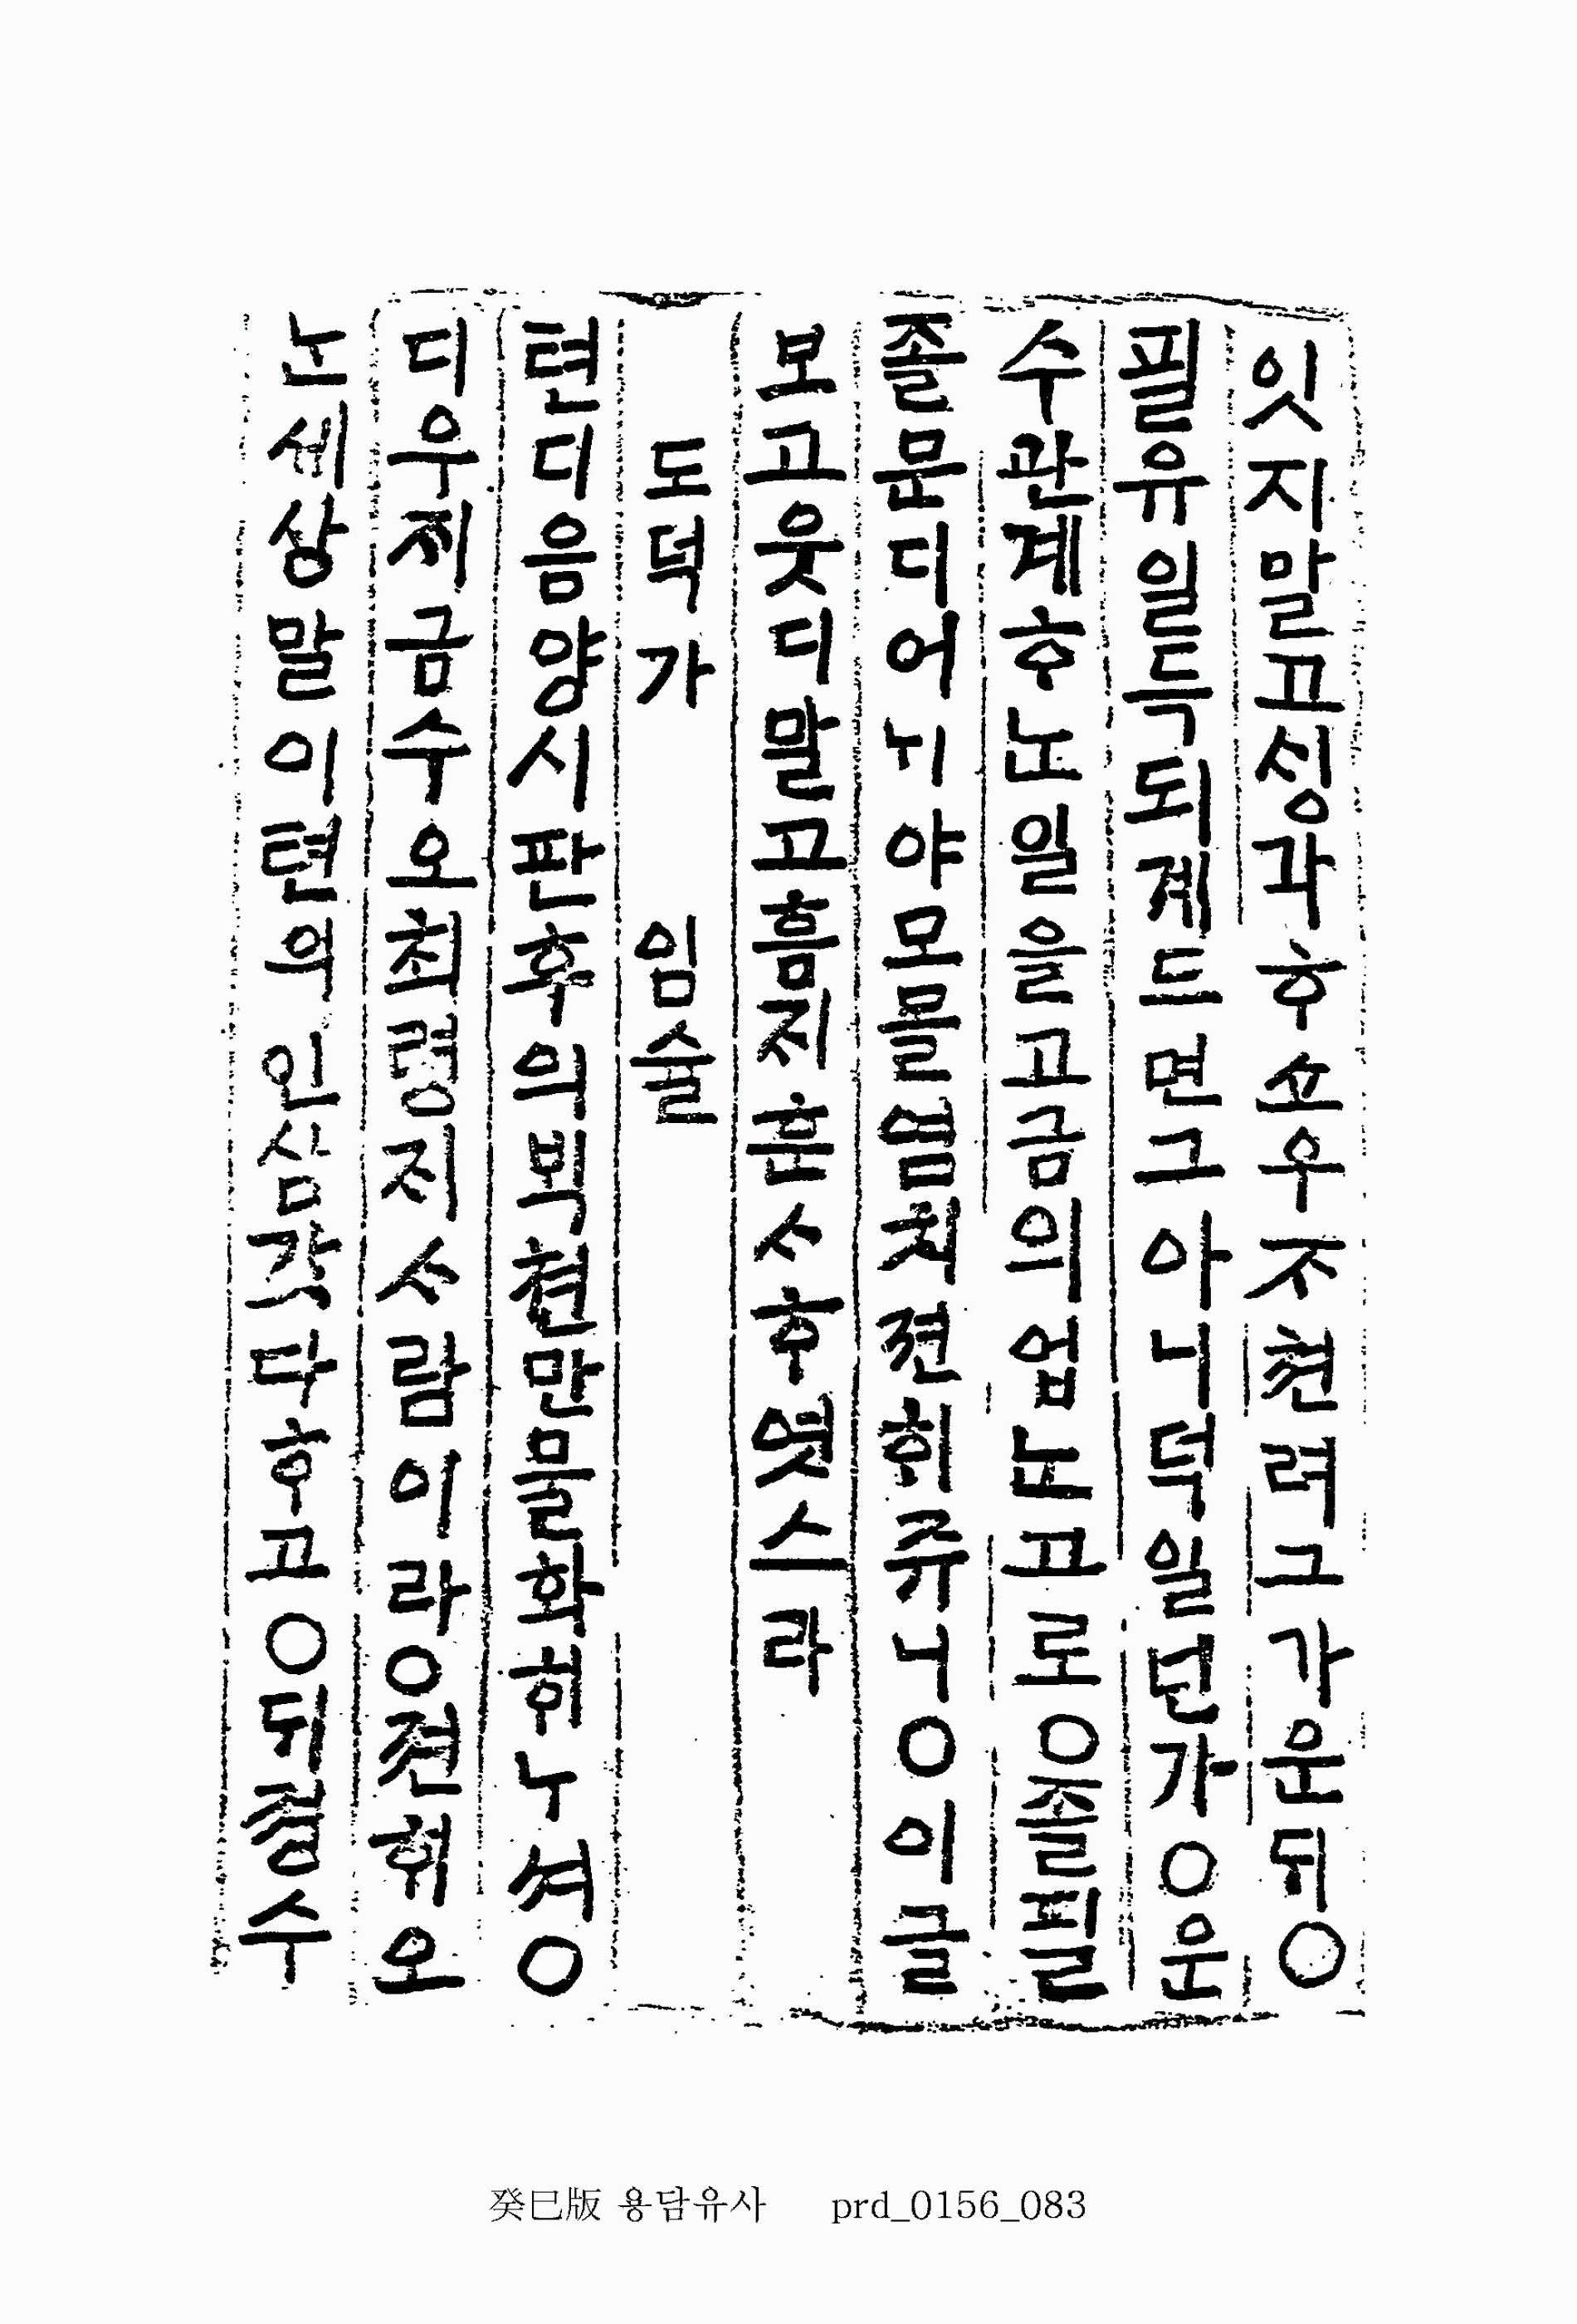 잇지말고ᄉᆡᆼ각ᄒᆞ쇼우ᄌᆞ쳔려그가운ᄃᆡ○
필유일득되계드면그아니덕일년가○운
수관계ᄒᆞᄂᆞᆫ일을고금의업ᄂᆞᆫ고로○졸필
졸문디어ᄂᆡ야모몰염치젼ᄒᆡ쥬니○이글
보고웃디말고흠ᄌᆡ훈ᄉᆞᄒᆞ엿스라
도덕가 임술
텬디음양시판후의ᄇᆡᆨ쳔만물화ᄒᆡ누셔○
디우ᄌᆡ금수오최령ᄌᆡᄉᆞ람이라○젼ᄒᆡ오
ᄂᆞᆫ셰상말이텬의인심갓다ᄒᆞ고○ᄃᆡ졍수